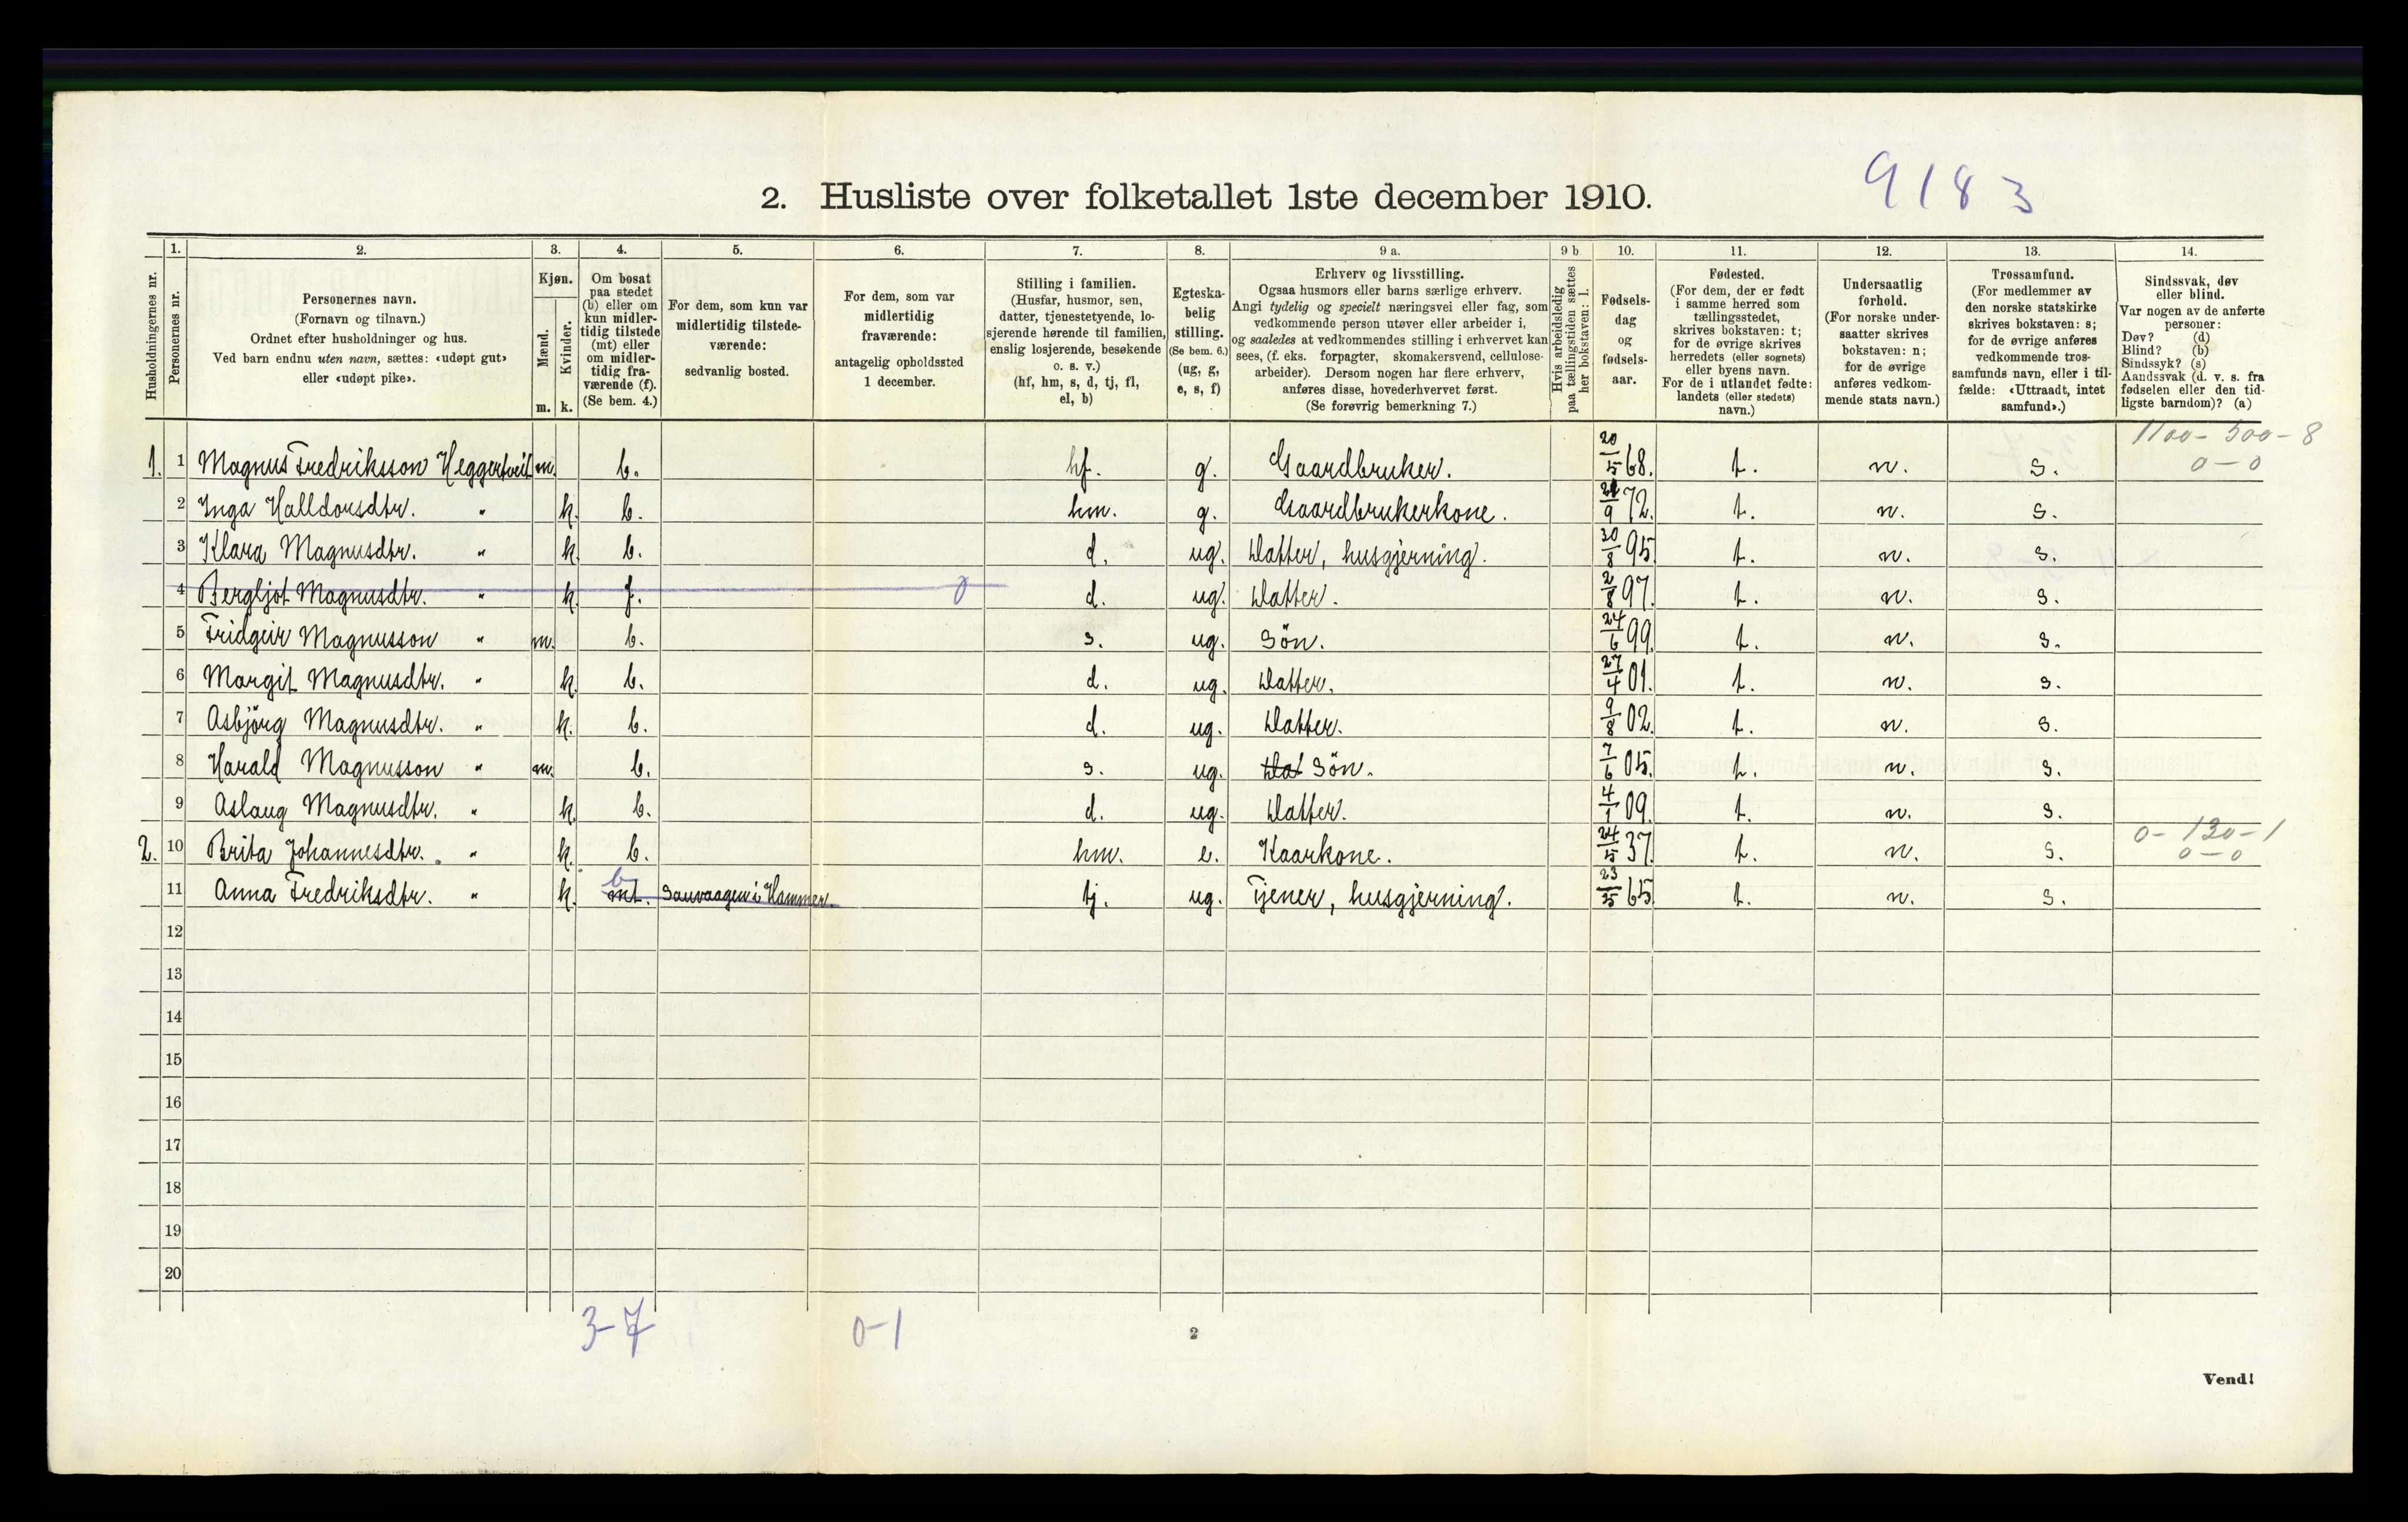 9183
2. Husliste over folketallet 1ste december 1910.
1. 2. 3. 4. 5. 6. 7. 8. 9 a. 9 b 10. 11. 12. 13. 14.
Husholdningernes nr.
Personernes nr.
Personernes navn.
(Fornavn og tilnavn.)
Ordnet efter husholdninger og hus.
Ved barn endnu uten navn, sættes: «udøpt gut»
eller «udøpt pike».
Kjøn.
Mænd.
Kvinder.
m. k.
Om bosat
paa stedet
(b) eller om
kun midler-
tidig tilstede
(mt) eller
om midler-
tidig fra-
værende (f).
(Se bem. 4.)
For dem, som kun var
midlertidig tilstede-
værende:
sedvanlig bosted.
For dem, som var
midlertidig
fraværende:
antagelig opholdssted
1 december.
Stilling i familien.
(Husfar, husmor, søn,
datter, tjenestetyende, lo-
sjerende hørende til familien,
enslig losjerende, besøkende
o. s. v.)
(hf, hm, s, d, tj, fl,
el, b)
Egteska-
belig
stilling.
(Se bem. 6.)
(ug, g,
e, s, f)
Erhverv og livsstilling.
Ogsaa husmors eller barns særlige erhverv.
Angi tydelig og specielt næringsvei eller fag, som
vedkommende person utøver eller arbeider i,
og saaledes at vedkommendes stilling i erhvervet kan
sees, (f. eks. forpagter, skomakersvend, cellulose-
arbeider). Dersom nogen har flere erhverv,
anføres disse, hovederhvervet først.
(Se forøvrig bemerkning 7.)
Hvis arbeidsledig
paa tællingstiden sættes
her bokstaven: l.
Fødsels-
dag
og
fødsels-
aar.
Fødested.
(For dem, der er født
i samme herred som
tællingsstedet,
skrives bokstaven: t;
for de øvrige skrives
herredets (eller sognets)
eller byens navn.
For de i utlandet fødte:
landets (eller stedets)
navn.)
Undersaatlig
forhold.
(For norske under-
saatter skrives
bokstaven: n;
for de øvrige
anføres vedkom-
mende stats navn.)
Trossamfund.
(For medlemmer av
den norske statskirke
skrives bokstaven: s;
for de øvrige anføres
vedkommende tros-
samfunds navn, eller i til-
fælde: «Uttraadt, intet
samfund».)
Sindssvak, døv
eller blind.
Var nogen av de anførte
personer:
Døv? (d)
Blind? (b)
Sindssyk? (s)
Aandssvak (d. v. s. fra
fødselen eller den tid-
ligste barndom)? (a)
1. 1 Magnus Fredriksson Heggertveit m. b. hf. g. Gaardbruker. 20/5 68. t. n. s. 1100-500-8 0-0
2 Inga Halldorsdtr. " k. b. hm. g. Gaardbrukerkone. 9 72. t. n. s.
3 Klara Magnusdtr. " k. b. d. ug. Datter, husgjerning. 30/8 95 t. n. s.
4 Bergljot Magnusdtr. " k. f. 0 d. ug. Datter. 2/8 97. t. n. s.
5 Fridgeir Magnusson " m. b. s. ug. Sön. 24/6 99. t. n. s.
6 Margit Magnusdtr. " k. b. d. ug. Datter. 27/4 01. t. n. s.
7 Asbjörg Magnusdtr. " k. b. d. ug. Datter. 9/8 02. t. n. s.
8 Harald Magnusson " m. b. s. ug. Dat Sön. 7/6 05. t. n. s.
9 Aslaug Magnusdtr. " k. b. d. ug. Datter. 4/1 09. t. n. s.
2. 10 Brita Johannesdtr. " k. b. hm. e. Kaarkone. 24/5 37. t. n. s. 0-130-1 0-0
11 Anna Fredriksdtr. " k. mt. b Sauvaagen i Hammer. tj. ug. Tjener, husgjerning. 23/5 65 t. n. s.
12
13
14
15
16
17
18
19
20
3-7 0-1
2
Vend!